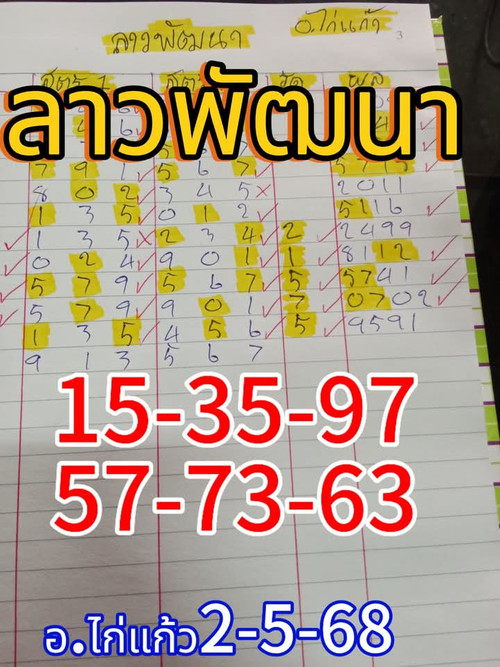 ลาวพัฒนา
อ.ไก่แก้ว
3
สูตร 1
ผล
ลาวพัฒนา
7 9 1 ✓ 5 6 7 5715
8 0 2 ✓ 3 4 5 × 2011
1 3 5 ✓ 0 1 2 ✓ 5116 ✓
1 3 5 × 2 3 4 2 ✓ 2499
0 2 4 ✓ 9 0 1 1 ✓ 8112 ✓
5 7 9 ✓ 5 6 7 ✓ 5 ✓ 5741 ✓
5 7 9 ✓ 9 0 1 ✓ 7 ✓ 0702 ✓
1 3 5 ✓ 4 5 6 ✓ 5 ✓ 9591
9 1 3 5 6 7
15-35-97
57-73-63
อ.ไก่แก้ว2-5-68